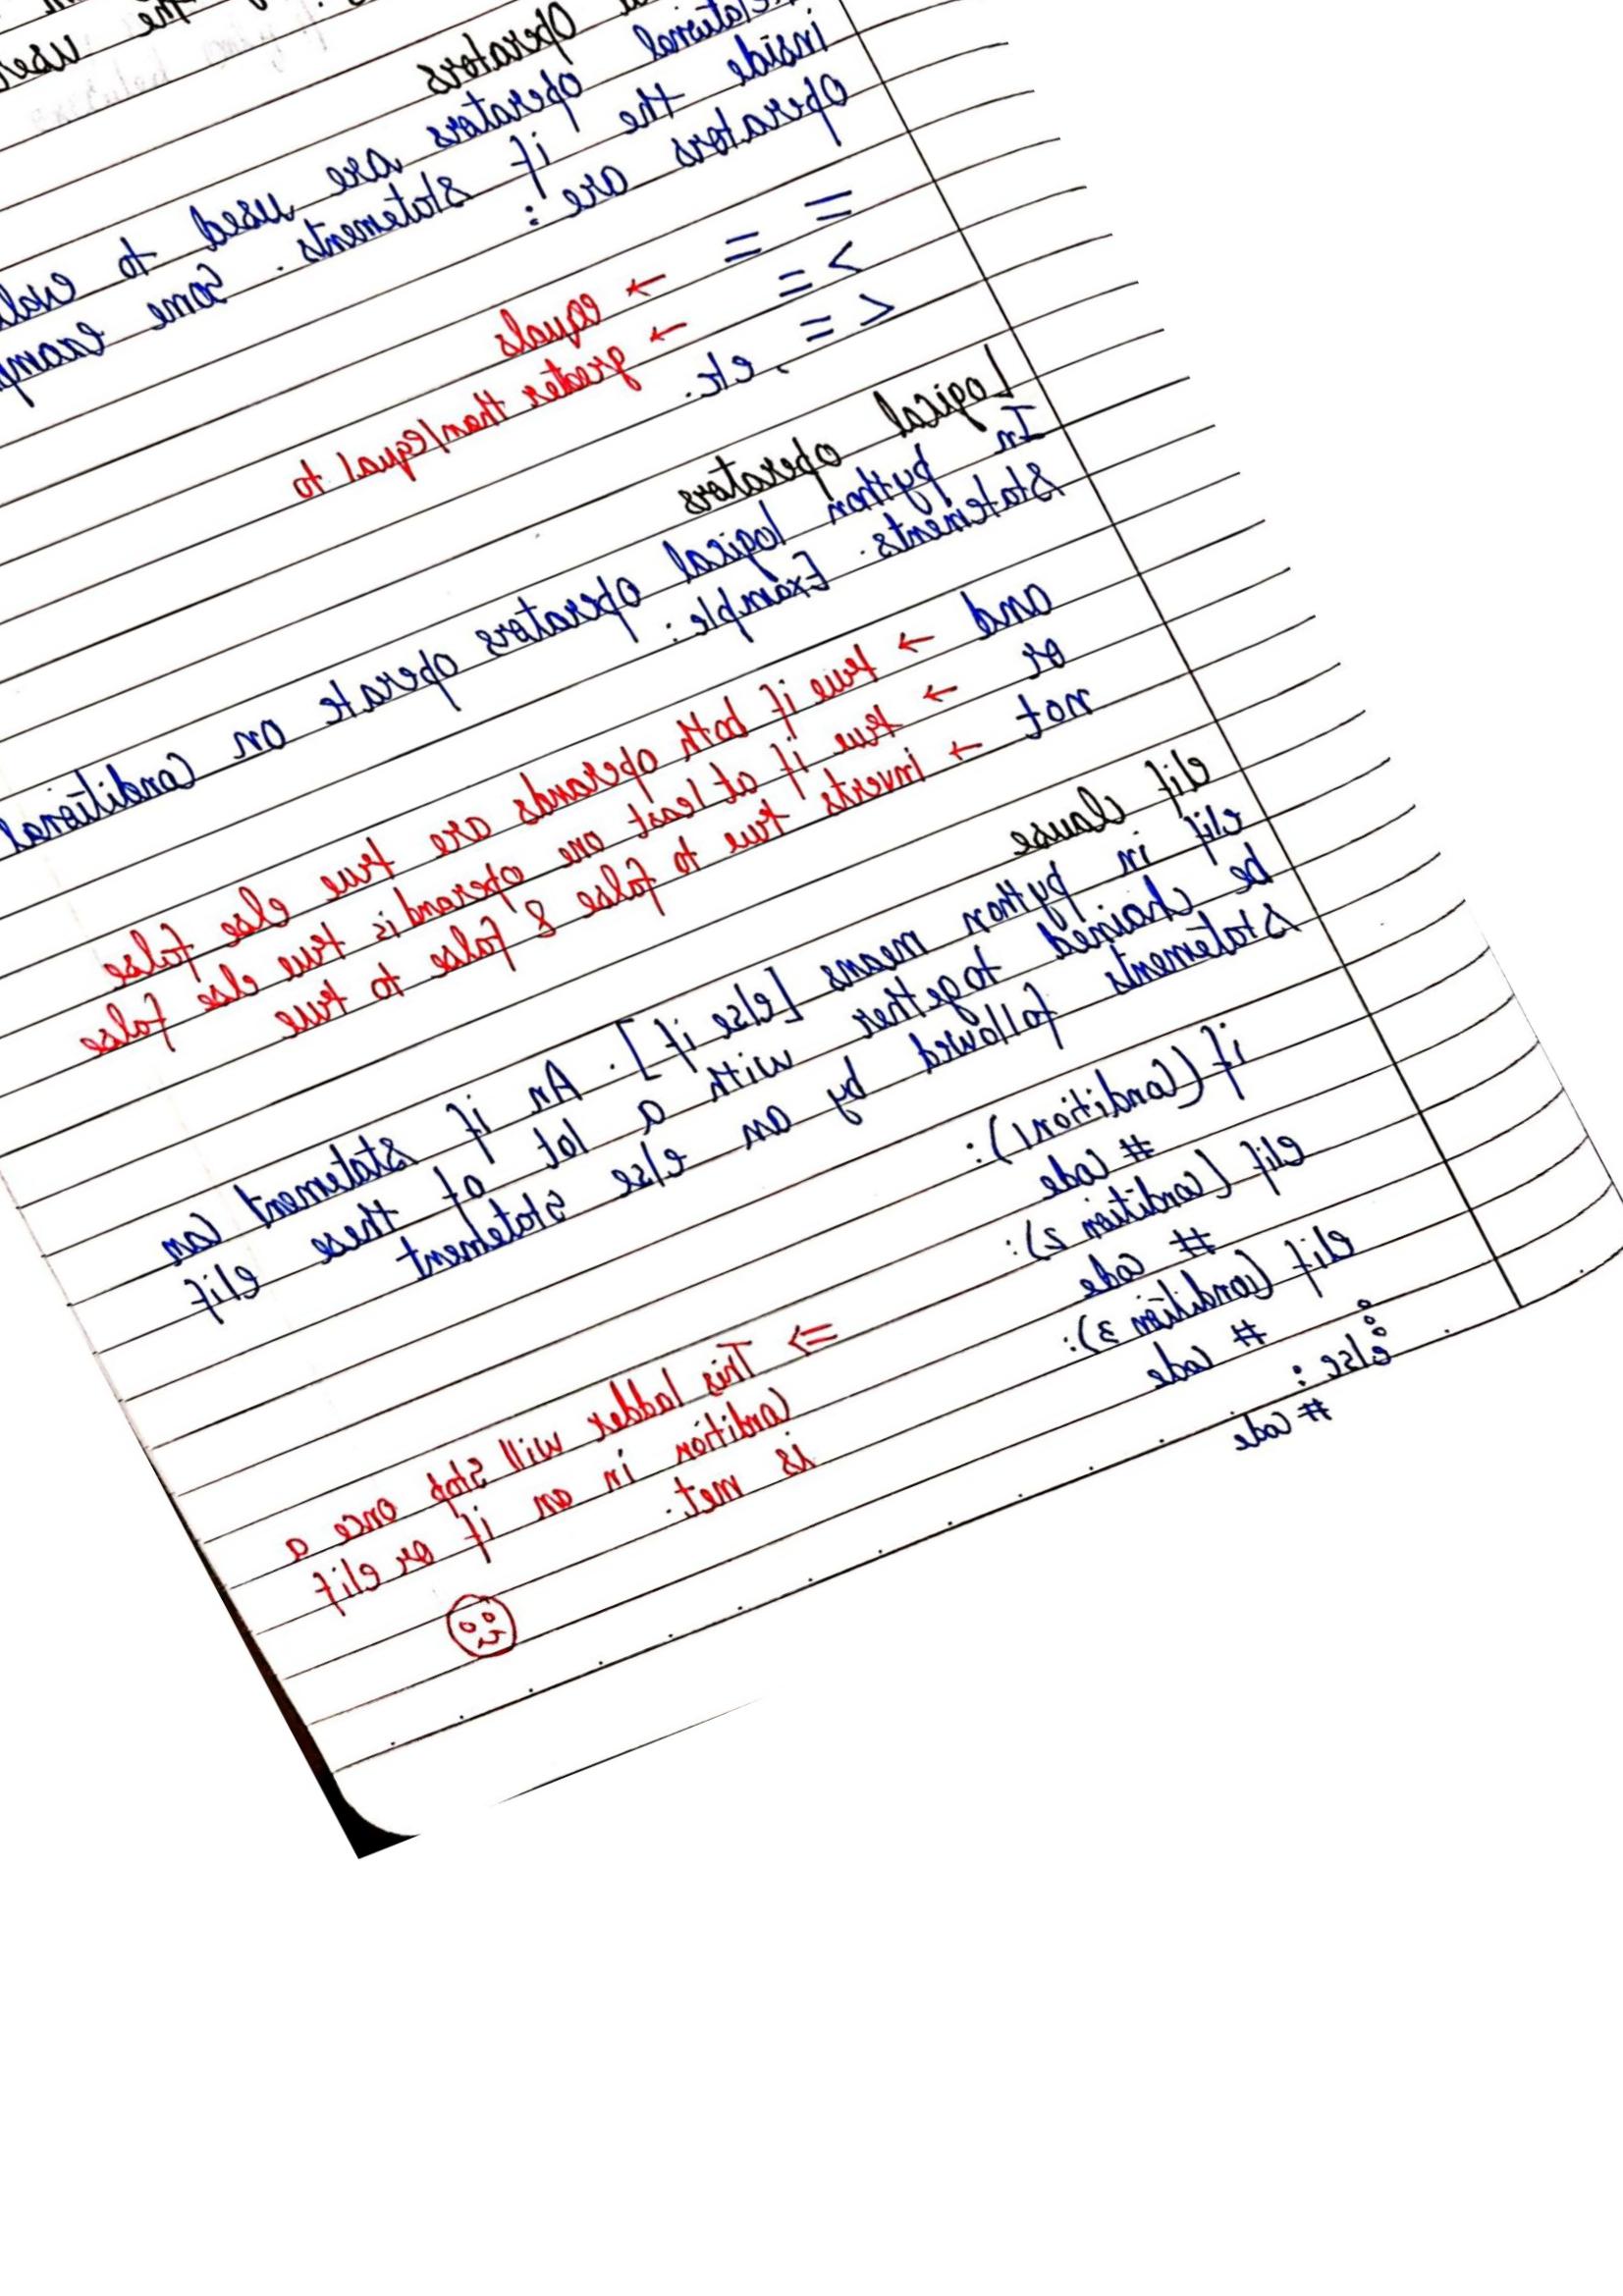 the user
Operators
operators are used to
inside the if statements. Some
operators are :
= = → equals
> = → greater than/equal to
< = , etc.
Logical operators
In python logical operators operate on Conditional
Statements. Example :
and → true if both operands are true else false
or → true if at least one operand is true else false
not → inverts true to false & false to true
elif clause
elif in python means [else if]. An if statement can
be chained together with a lot of these elif
Statements followed by an else statement
if (Condition1) :
# code
elif (condition 2):
# code
elif (condition 3):
# code
else :
# code
⇒ This ladder will stop once a
Condition in an if or elif
is met.